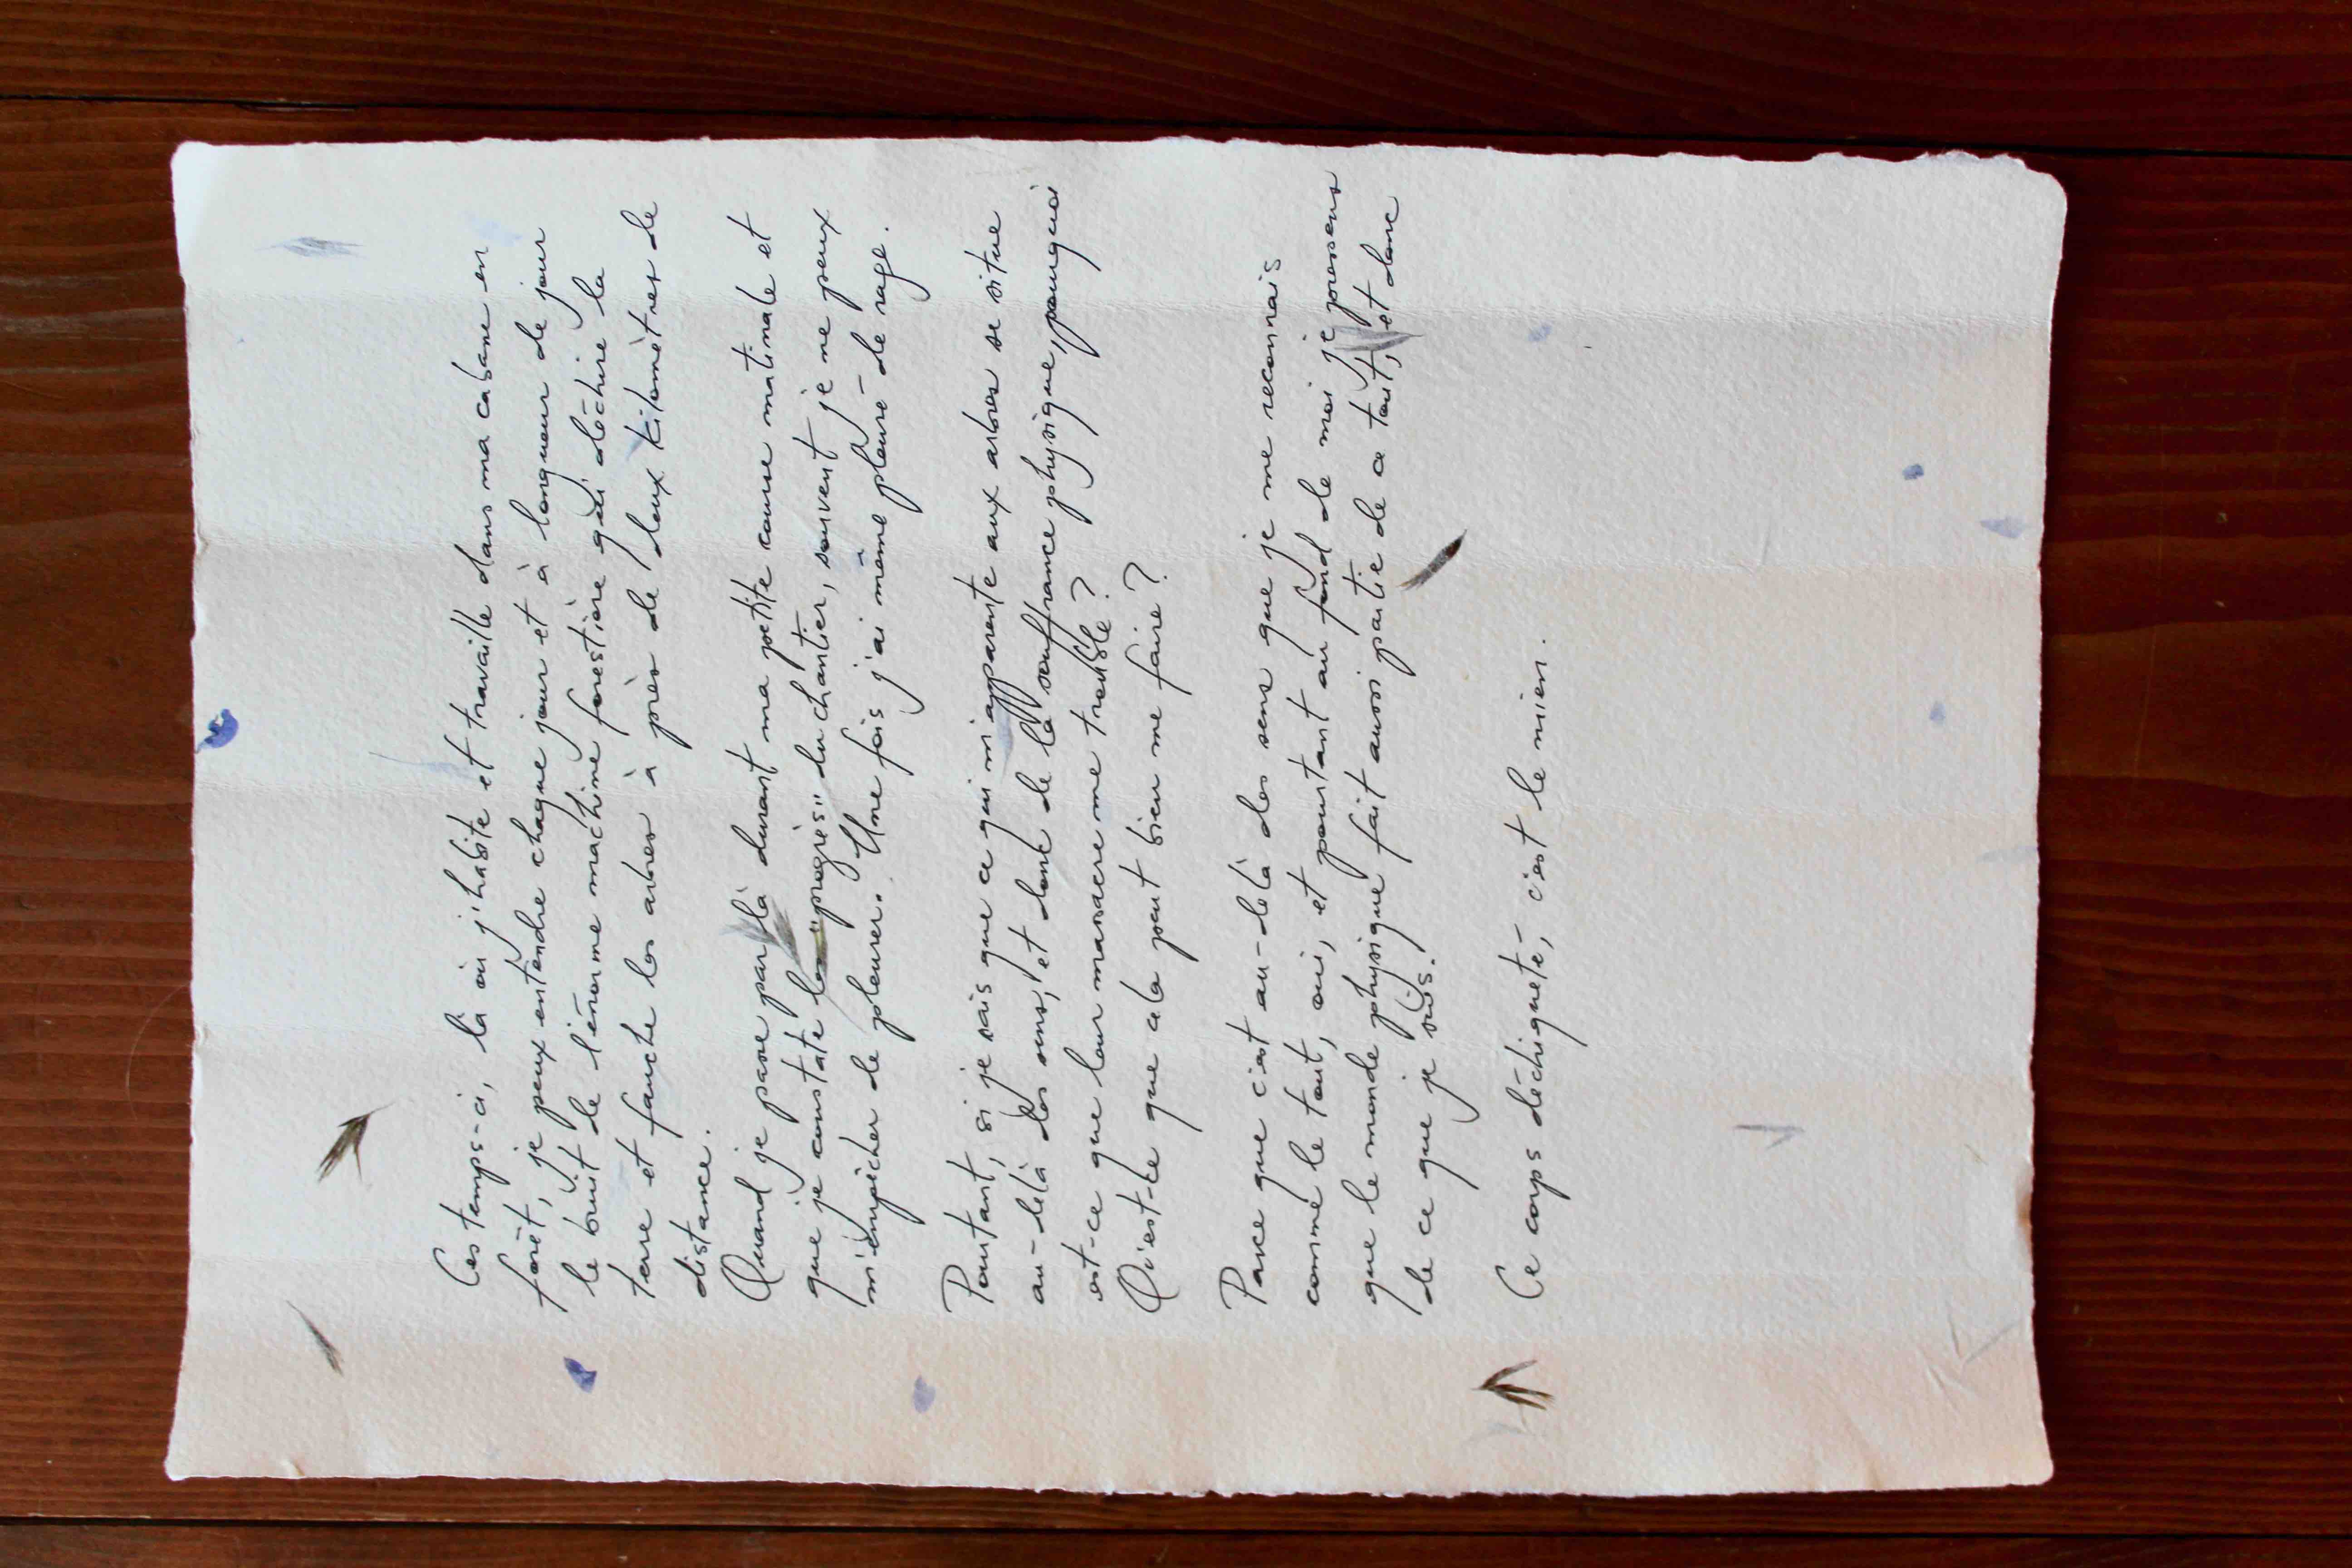 Ces temps-ci, là où j'habite et travaille dans ma cabane en
forêt, je peux entendre chaque jour et à longueur de jour
le bruit de l'énorme machine forestière qui déchire la
terre et fauche les arbres à près de deux kilomètres de
distance.
Quand je passe par là durant ma petite course matinale et
que je constate le "progrès" du chantier, souvent je ne peux
m'empêcher de pleurer. Une fois j'ai même pleuré de rage.
Pourtant, si je sais que ce qui m'apparente aux arbres se situe
au-delà des sens, et donc de la souffrance physique, pourquoi
est-ce que leur massacre me trouble?
Qu'est-ce que cela peut bien me faire?
Parce que c'est au-delà des sens que je me reconnais
comme le tout, oui, et pourtant au fond de moi je pressens
que le monde physique fait aussi partie de ce tout, et donc
de ce que je suis.
Ce corps déchiqueté, c'est le mien.